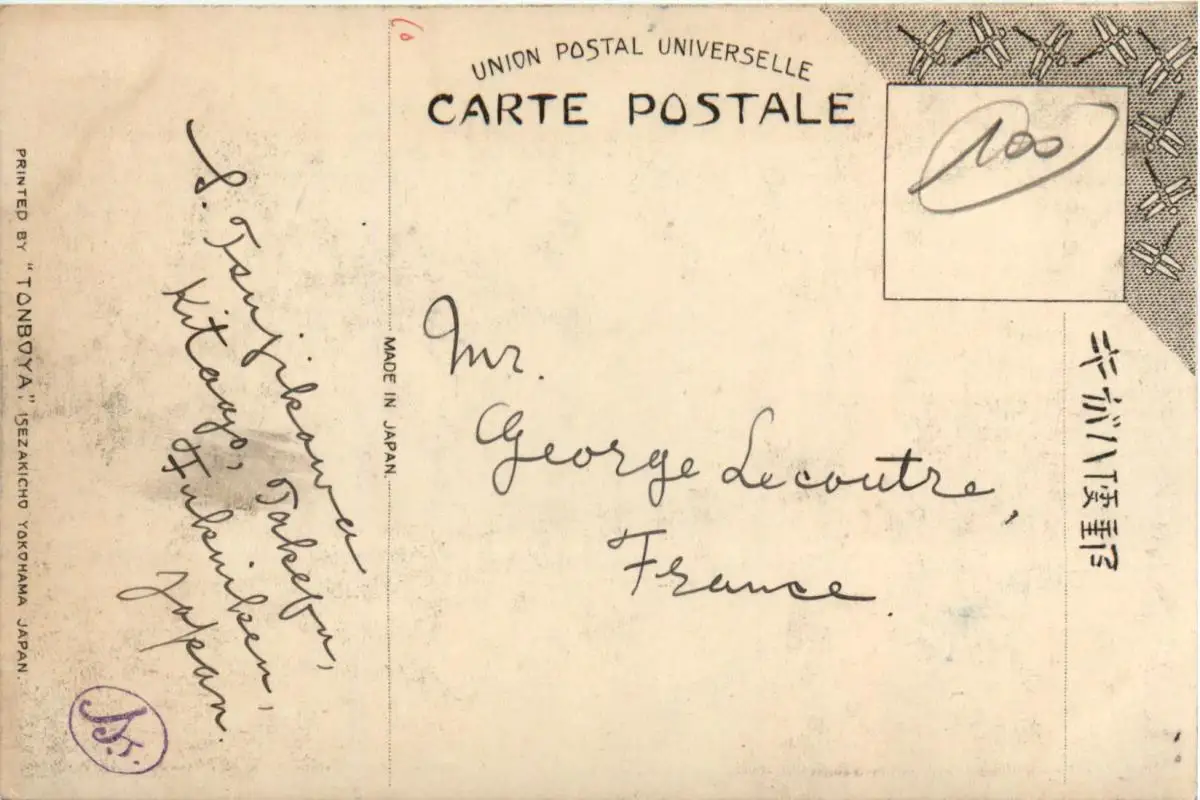 UNION POSTAL UNIVERSELLE
CARTE POSTALE
100
キがハ便郵
Mr.
George Lecoutre,
France.
MADE IN JAPAN.
S. Tsujikawa
Kitago, Takefu,
Fukuiken,
Japan.
PRINTED BY "TONBOYA," ISEZAKICHO YOKOHAMA JAPAN.